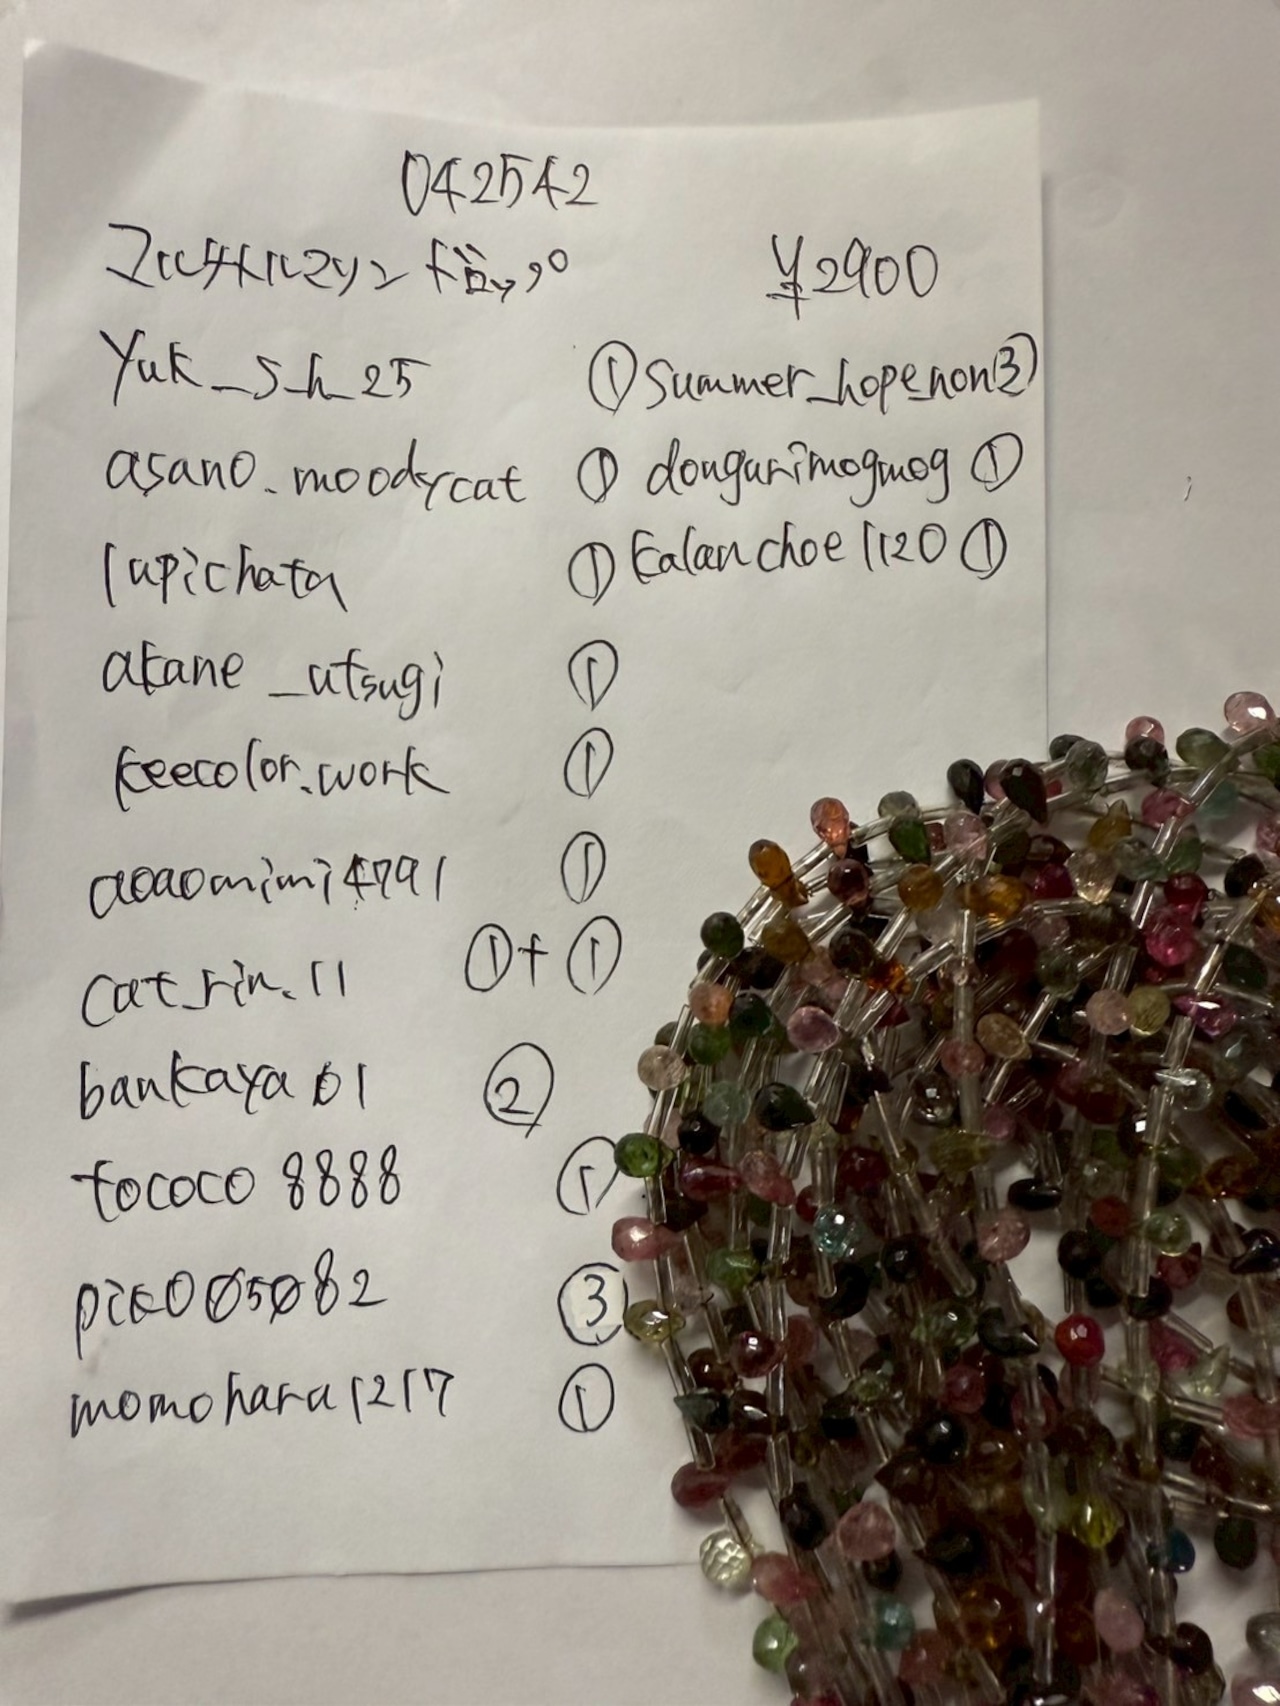 042542
マルチトルマリン ドロップ ¥2900
Yuk_s_h_25 ① Summer_hope_non ③
asano.moodycat ① dongurimogmog ①
lapichata ① kalanchoe1120 ①
akane_utsugi ①
keecolor.work ①
aoaomimi4791 ①
cat_rin.11 ①+①
bankaya61 ②
tococo8888 ①
pico05082 ③
momohara1217 ①